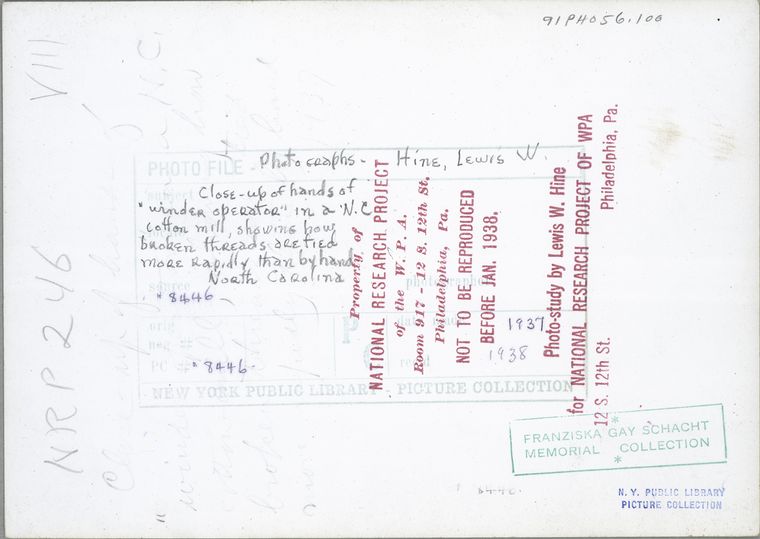 91PH056.100
VIII
NRP 246
PHOTO FILE
Photographs - Hine, Lewis W.
Close-up of hands of
"winder operator" in a N.C.
cotton mill, showing how
broken threads are tied
more rapidly than by hand
North Carolina
"8446
source
photographer
orig
neg #
PC #
"8446"
NEW YORK PUBLIC LIBRARY PICTURE COLLECTION
Property of
NATIONAL RESEARCH PROJECT
of the W. P. A.
Room 917 - 12 S. 12th St.
Philadelphia, Pa.
NOT TO BE REPRODUCED
BEFORE JAN. 1938.
1937
1938
Photo-study by Lewis W. Hine
for NATIONAL RESEARCH PROJECT OF WPA
12 S. 12th St. Philadelphia, Pa.
FRANZISKA GAY SCHACHT
MEMORIAL COLLECTION
N. Y. PUBLIC LIBRARY
PICTURE COLLECTION